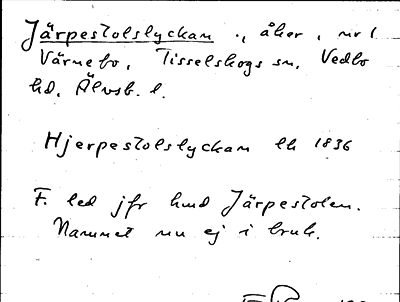 Järpestolslyckan ., åker, nr 1
Värnebo, Tisselskogs sn, Vedbo
hd, Älvsb. l.
Hjerpestolslyckan lh 1836
F. led jfr hmd Järpestolen.
Namnet nu ej i bruk.